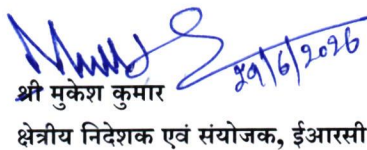 29/6/2026
श्री मुकेश कुमार
क्षेत्रीय निदेशक एवं संयोजक, ईआरसी